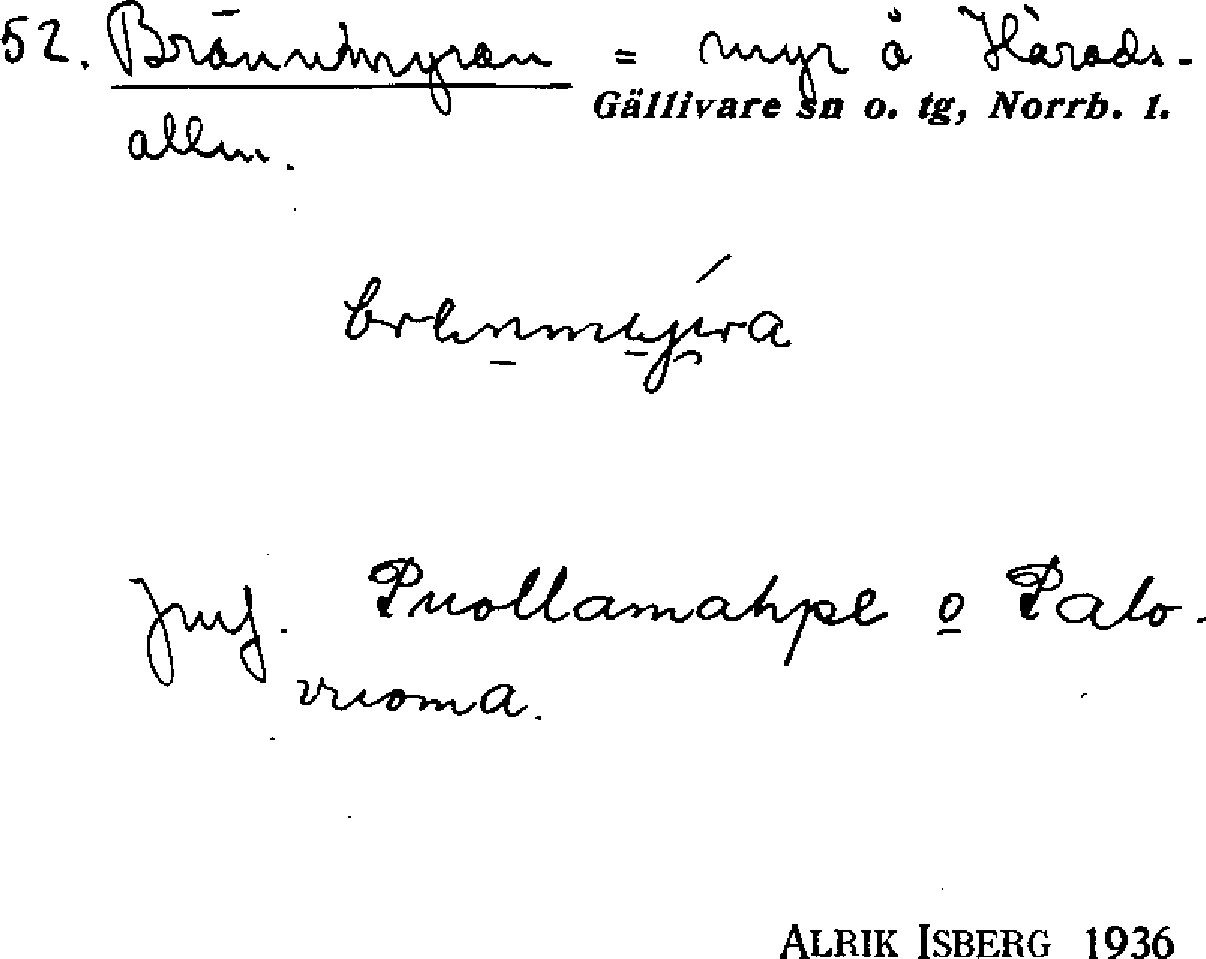 52. Brännmyran = myr å Härads-
Gällivare sn o. tg, Norrb. l.
allm.
Jmf. Puollamahpe o Palo-
vuoma.
ALRIK ISBERG 1936